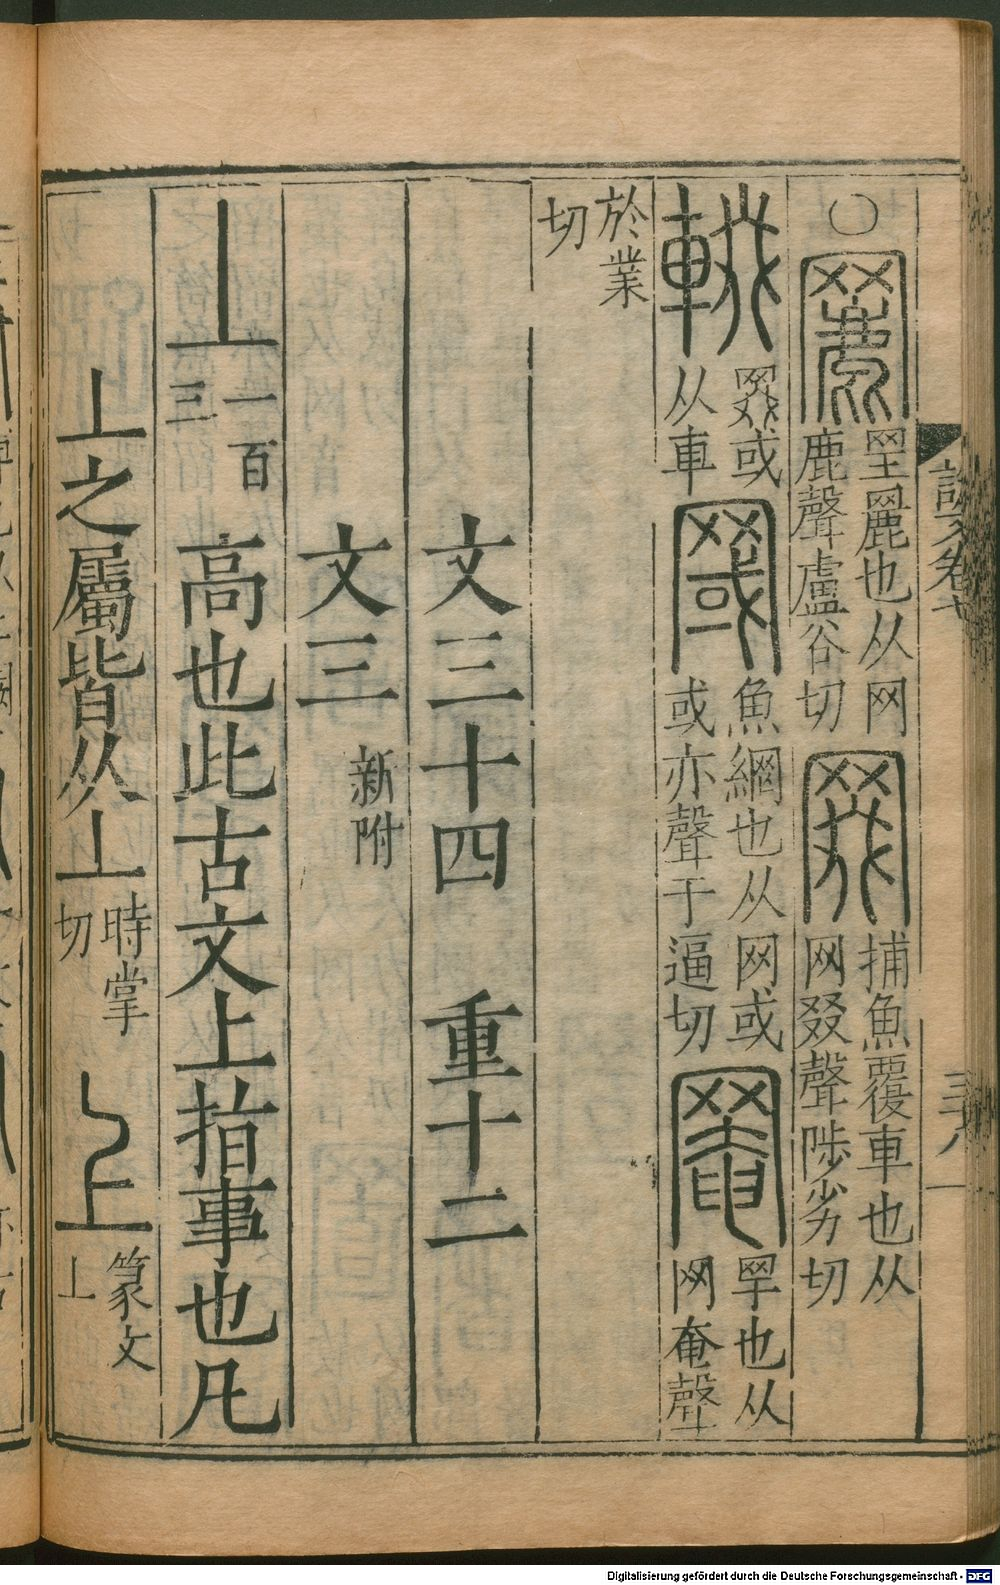 說文卷七
○䍡罜䍡也从网鹿聲盧谷切罬捕魚覆車也从网叕聲陟劣切
輟罬或从車罭魚網也从网或或亦聲于逼切罨罕也从网奄聲
於業切
文三十四 重十二
文三 新附
丄一百三 高也此古文上指事也凡
丄之屬皆从丄時掌切 上篆文丄
Digitalisierung gefördert durch die Deutsche Forschungsgemeinschaft - DFG